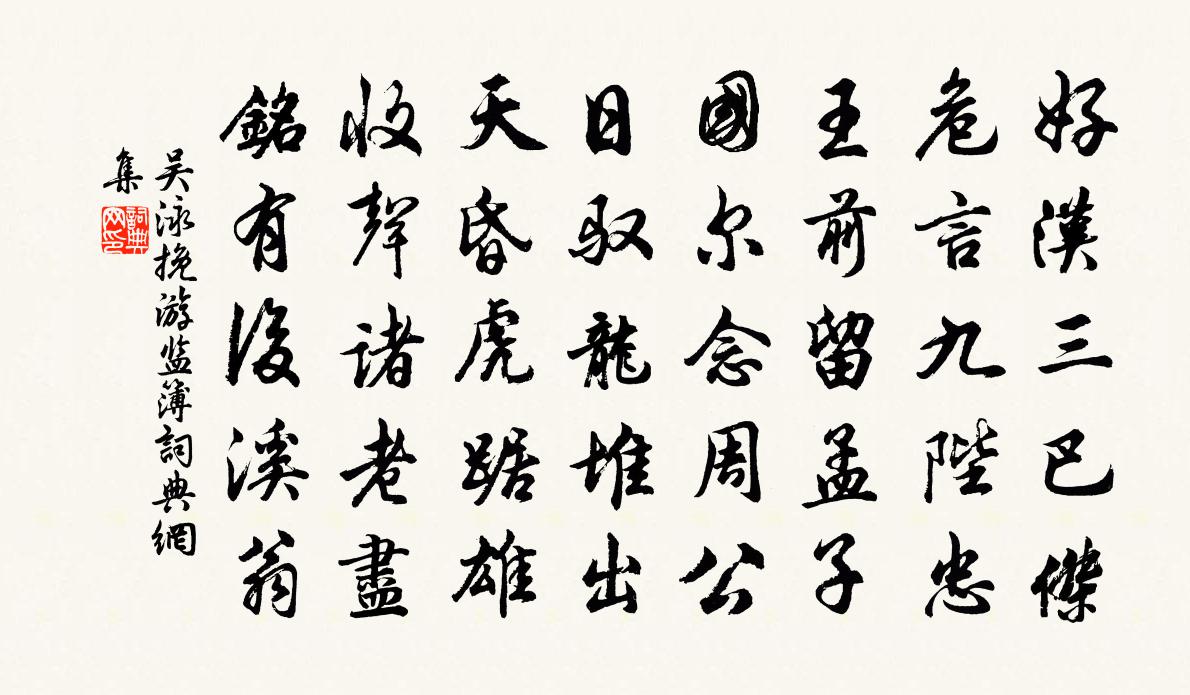 好漢三巴傑
危言九陛忠
王前留孟子
國尔念周公
日馭龍堆出
天昏虎踞雄
收聲諸老盡
銘有後溪翁
吴泳挽游监簿詞典網
集
詞典网印